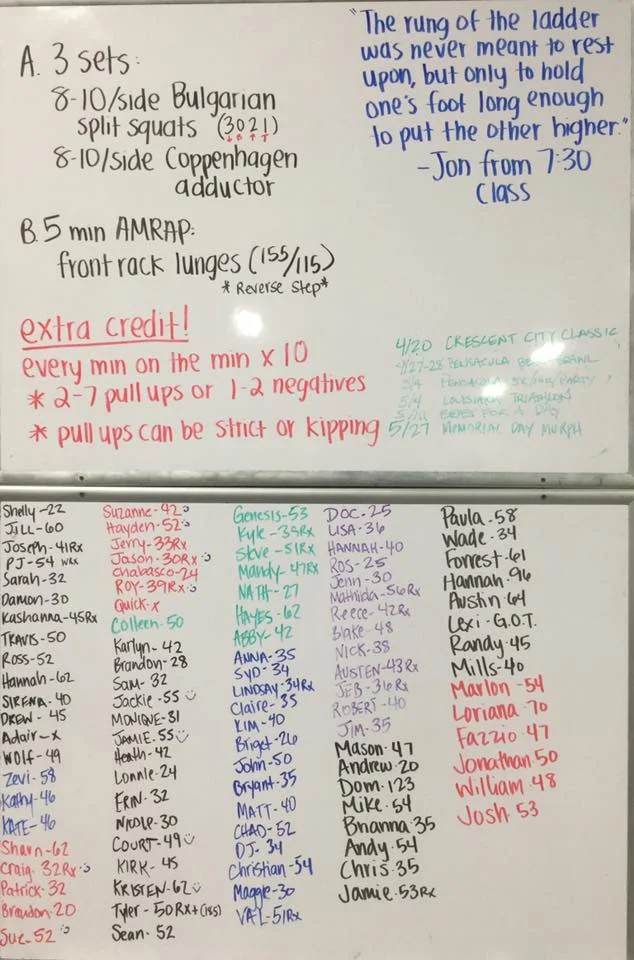 A. 3 sets:
8-10/side Bulgarian
split squats (3021)
8-10/side Coppenhagen
adductor
B. 5 min AMRAP:
front rack lunges (155/115)
* Reverse Step*
"The rung of the ladder
was never meant to rest
upon, but only to hold
one's foot long enough
to put the other higher."
-Jon from 7:30
Class
extra credit!
every min on the min x 10
* 2-7 pull ups or 1-2 negatives
* pull ups can be strict or kipping
4/20 CRESCENT CITY CLASSIC
4/27-28 PENSACOLA BEACH BRAWL
5/4 PENSACOLA
5/4 LOUISIANA TRIATHLON
FOR A DAY
5/27 MEMORIAL DAY MURPH
Shelly-22
JILL-60
Joseph-41Rx
PJ-54 WRX
Sarah-32
Damon-30
Kashanna-45Rx
TRAVIS-50
ROSS-52
Hannah-62
SIRENA-40
DREW-45
Adair-x
WOLF-49
Zevi-58
Kathy-46
KATE-46
Sharn-62
Craig-32Rx
Patrick-32
Brandon-20
Sue-52
Suzanne-42
Hayden-52
Jerry-33Rx
Jason-30Rx
Chabasco-24
ROY-39Rx
Quick-x
Colleen-50
Karlyn-42
Brandon-28
Sam-32
Jackie-55
MONIQUE-31
JAMIE-55
Heath-42
Lonnie-24
ERIN-32
NICOLE-30
COURT-49
KIRK-45
KRISTEN-62
Tyler-50Rx+(185)
Sean-52
Genesis-53
Kyle-39Rx
Steve-51Rx
Mandy-47Rx
NATH-27
HAYES-62
ABBY-42
ANNA-35
SYD-34
LINDSAY-34Rx
Claire-35
KIM-40
Briget-26
John-50
Bryant-35
MATT-40
CHAD-52
DJ-34
Christian-54
Maggie-30
VAL-51Rx
DOC-25
LISA-36
HANNAH-40
ROS-25
Jenn-30
Mathilda-56Rx
Reece-42Rx
Blake-48
NICK-38
AUSTEN-43Rx
JEB-36Rx
ROBERT-40
JIM-35
Mason-47
Andrew-20
Dom-123
Mike-54
Brianna-35
Andy-54
Chris-35
Jamie-53Rx
Paula-58
Wade-34
Forrest-61
Hannah-96
Austin-64
Lexi-G.O.T.
Randy-45
Mills-40
Marlon-54
Loriana-70
Fazzio-47
Jonathan-50
William-48
Josh-53